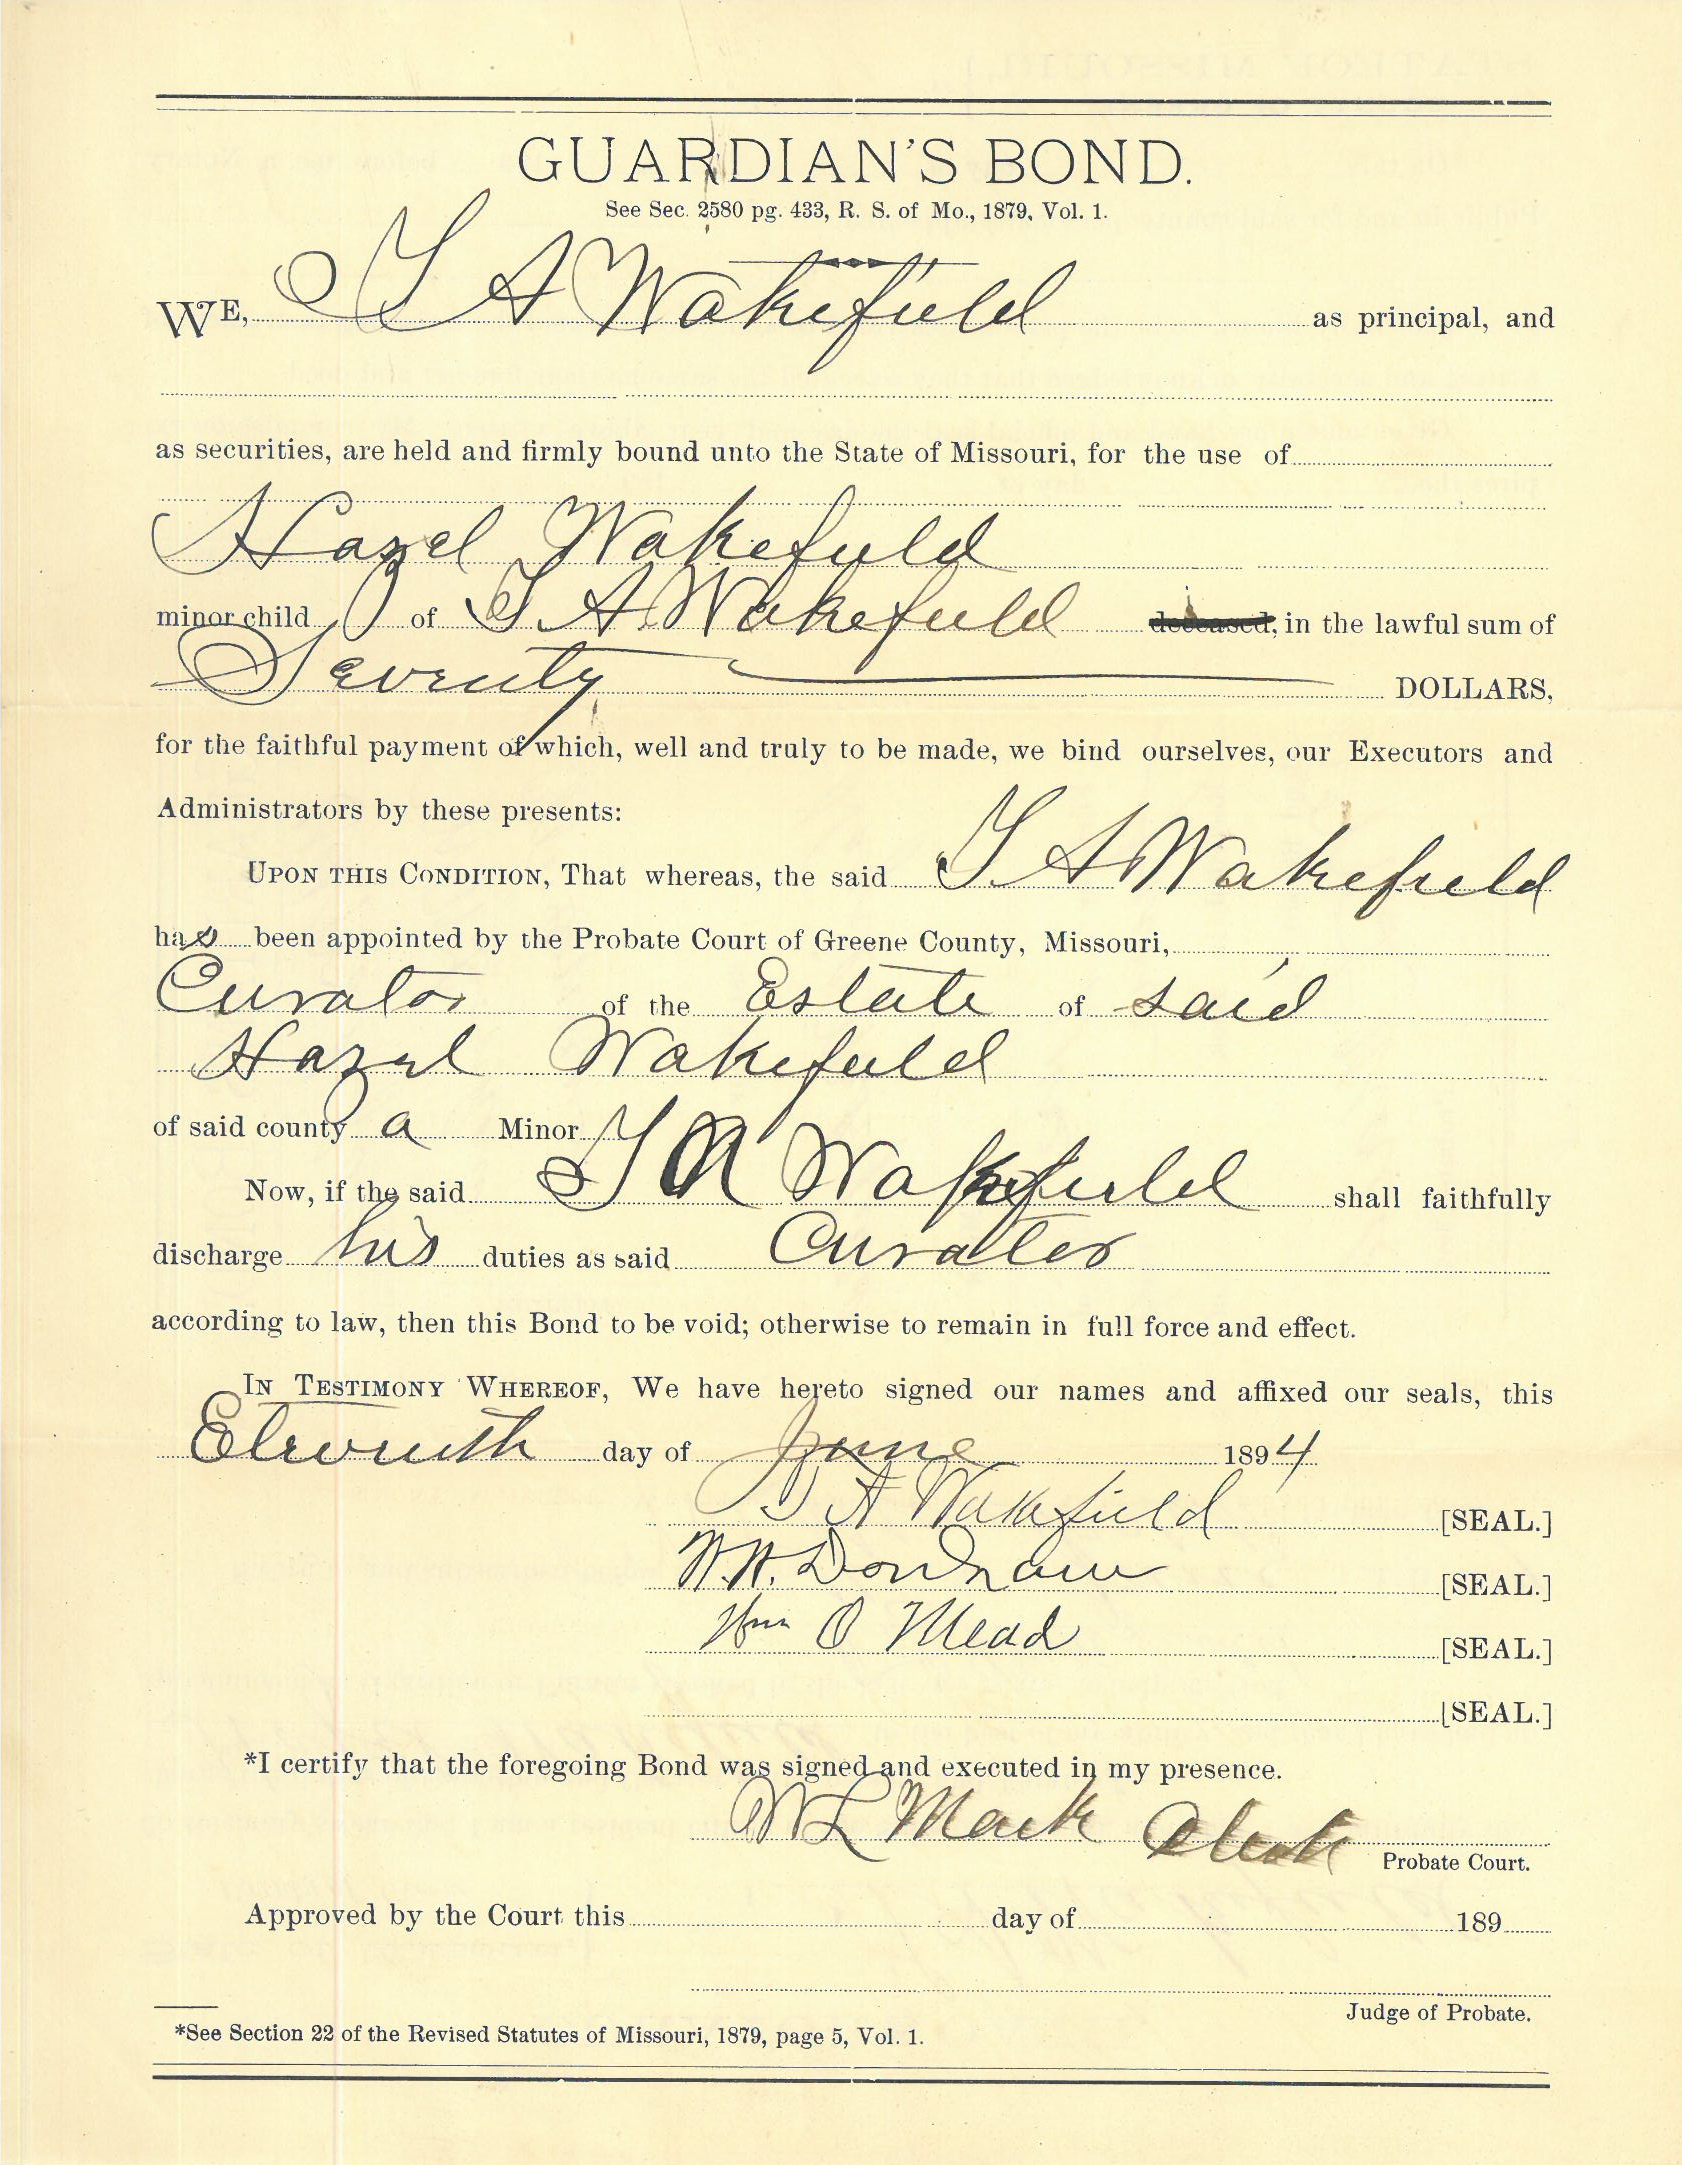 GUARDIAN'S BOND.
See Sec. 2580 pg. 433, R. S. of Mo., 1879, Vol. 1.
WE, T A Wakefield as principal, and
as securities, are held and firmly bound unto the State of Missouri, for the use of
Hazel Wakefield
minor child of T. A. Wakefield deceased, in the lawful sum of
Seventy DOLLARS,
for the faithful payment of which, well and truly to be made, we bind ourselves, our Executors and
Administrators by these presents:
UPON THIS CONDITION, That whereas, the said T A Wakefield
has been appointed by the Probate Court of Greene County, Missouri,
Curator of the Estate of said
Hazel Wakefield
of said county a Minor
Now, if the said T A Wakefield shall faithfully
discharge his duties as said Curator
according to law, then this Bond to be void; otherwise to remain in full force and effect.
IN TESTIMONY WHEREOF, We have hereto signed our names and affixed our seals, this
Eleventh day of June 1894
T A Wakefield [SEAL.]
W. H. [SEAL.]
Wm O Mead [SEAL.]
[SEAL.]
*I certify that the foregoing Bond was signed and executed in my presence.
W L Mack Clerk
Probate Court.
Approved by the Court this day of 189
Judge of Probate.
*See Section 22 of the Revised Statutes of Missouri, 1879, page 5, Vol. 1.